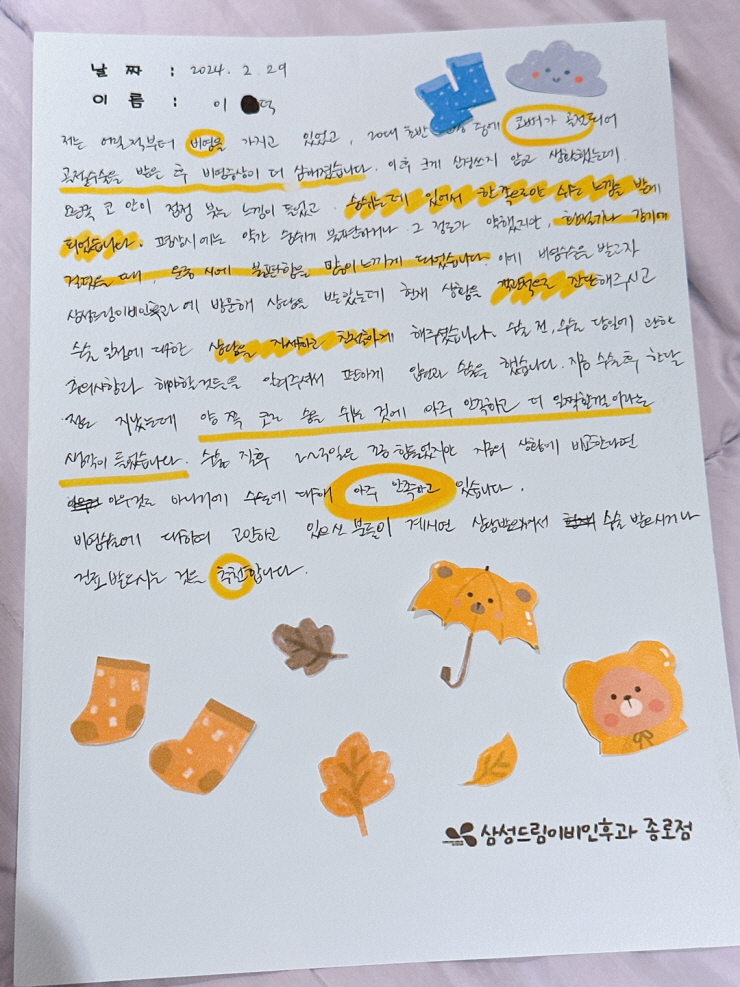 날 짜 : 2024. 2. 29
이 름 : 이 덕
저는 어릴 적부터 비염을 가지고 있었고, 20대 초반 등에 코뼈가 골절되어
골절수술을 받은 후 비염증상이 더 심해졌습니다. 이후 크게 신경쓰지 않고 생활했는데
오른쪽 코 안이 점점 붓는 느낌이 들었고 숨쉬는데 있어서 한 쪽으로만 쉬는 느낌을 받게
되었습니다. 평상시에는 약간 숨쉬기 불편하거나 그 정도가 약했지만, 환절기나 감기에
걸렸을 때, 운동 시에 불편함을 많이 느끼게 되었습니다. 이에 비염수술을 받고자
삼성드림이비인후과에 방문해 상담을 받았는데 현재 상황을 객관적으로 진단해주시고
수술 일정에 대한 상담을 자세하고 친절하게 해주셨습니다. 수술 전, 수술 당일에 관한
주의사항과 해야할것들을 알려주셔서 편하게 입원과 수술을 했습니다. 지금 수술 후 한달
정도 지났는데 양 쪽 코로 숨을 쉬는 것에 아주 만족하고 더 일찍할껄이라는
생각이 들었습니다. 수술 직후 2~3일은 조금 힘들었지만 지금의 상황에 비교한다면
아무것도 아니기에 수술에 대해 아주 만족하고 있습니다.
비염수술에 대하여 고민하고 있으신 분들이 계시면 상담받으셔서 수술 받으시거나
진료 받으시는 것을 추천합니다.
삼성드림이비인후과 종로점